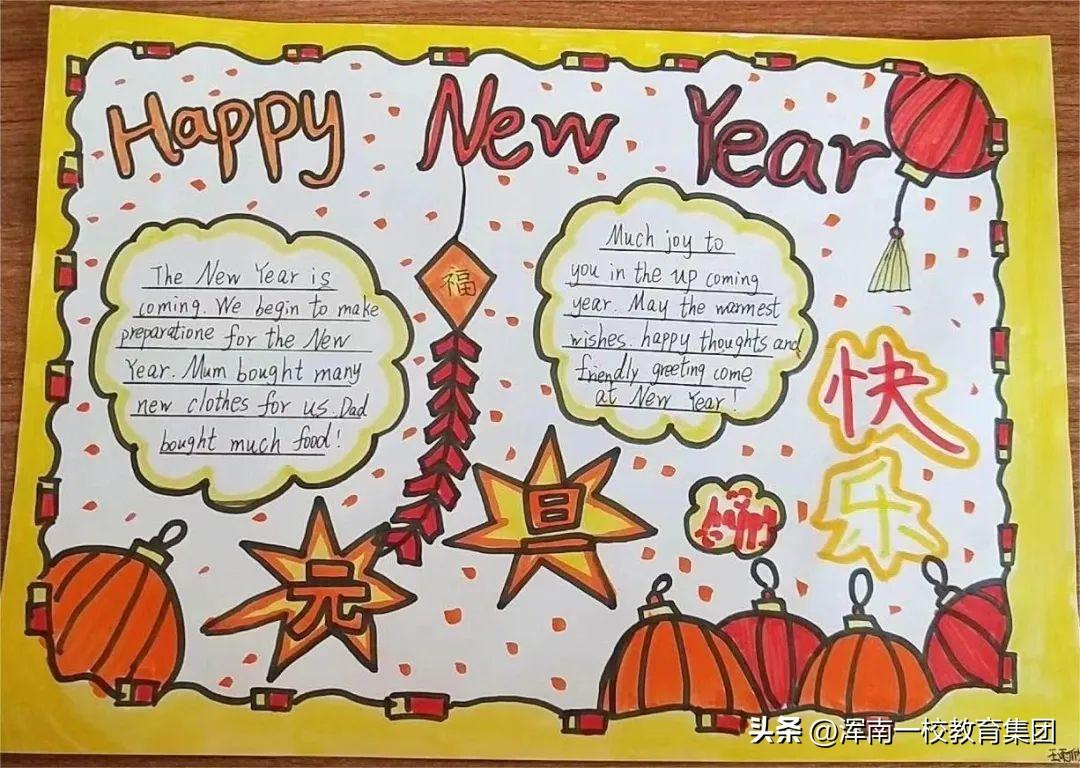 Happy New Year
The New Year is
coming. We begin to make
preparatione for the New
Year. Mum bought many
new clothes for us. Dad
bought much food!
福
Much joy to
you in the up coming
year. May the warmest
wishes. happy thoughts and
friendly greeting come
at New Year!
快
乐
元
旦
头条 @浑南一校教育集团